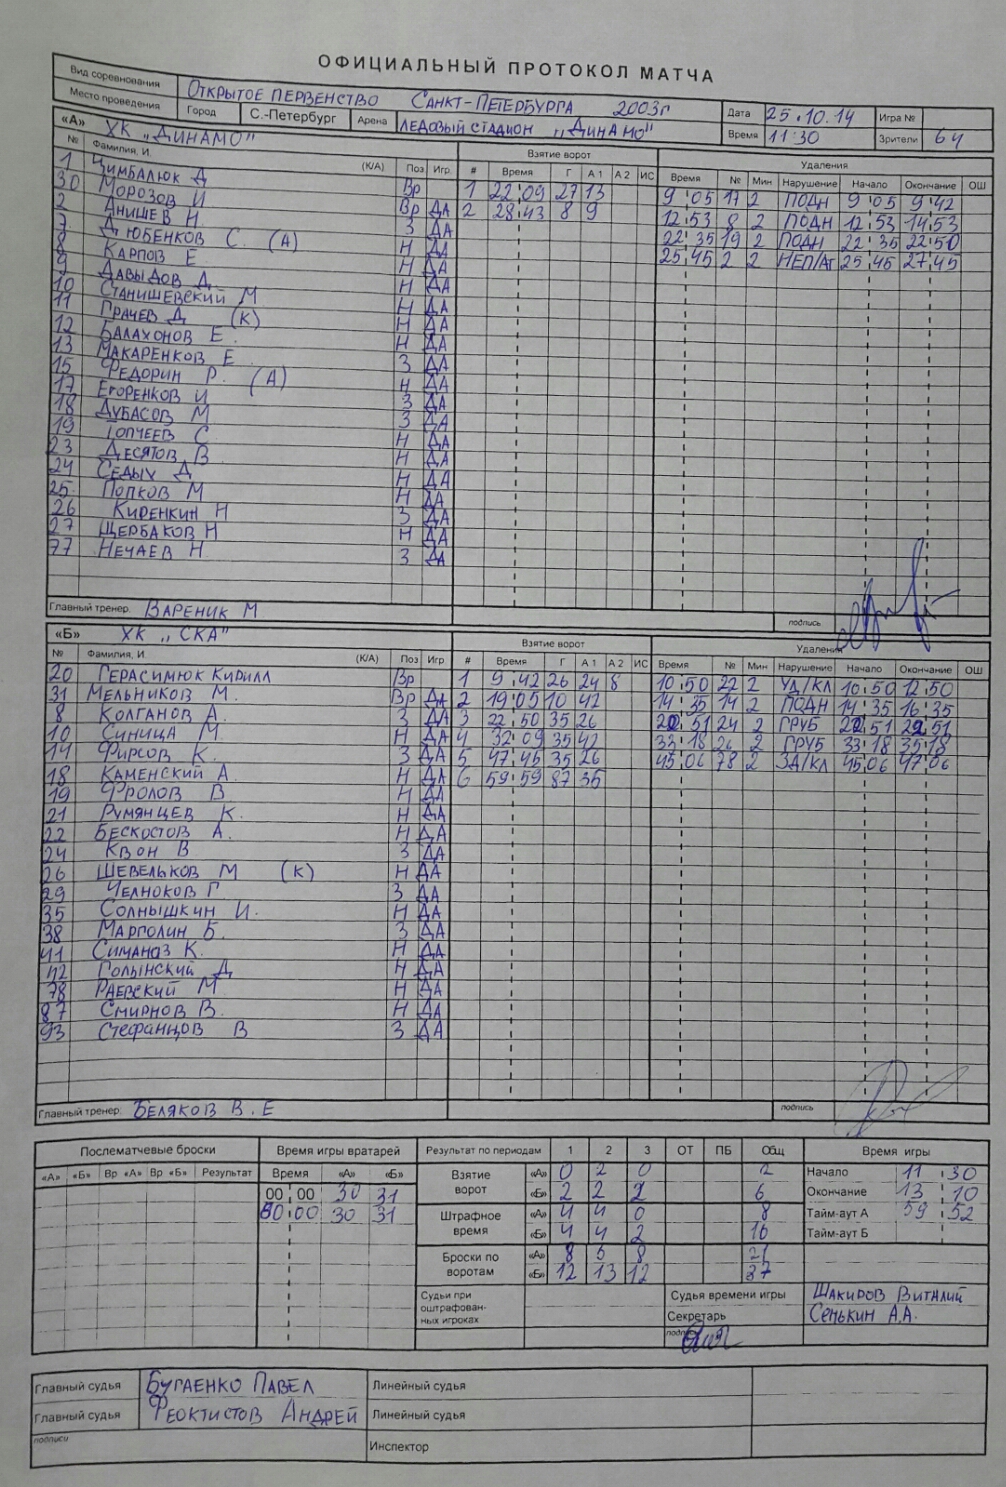 ОФИЦИАЛЬНЫЙ ПРОТОКОЛ МАТЧА
Вид соревнования ОТКРЫТОЕ ПЕРВЕНСТВО САНКТ-ПЕТЕРБУРГА 2003г Дата 25.10.14 Игра №
Место проведения Город С.-Петербург Арена ЛЕДОВЫЙ СТАДИОН „ДИНАМО" Время 11:30 Зрители 64
«А» ХК „ДИНАМО" Взятие ворот Удаления
№ Фамилия, И. (К/А) Поз Игр. # Время Г А 1 А 2 ИС Время № Мин Нарушение Начало Окончание ОШ
1 ЦИМБАЛЮК Д Вр 1 22 09 27 13 9 05 17 2 ПОДН 9 05 9 42
30 МОРОЗОВ И Вр ДА 2 28:43 8 9 12:53 8 2 ПОДН 12 53 14:53
2 АНИШЕВ Н З ДА 22 35 19 2 ПОДН 22 35 22:50
7 ДЮБЕНКОВ С. (А) Н ДА 25:45 2 2 НЕП/АТ 25 45 27:45
8 КАРПОВ Е Н ДА
9 ДАВЫДОВ Д Н ДА
10 СТАНИШЕВСКИЙ М Н ДА
11 ГРАЧЕВ Д (К) Н ДА
12 БАЛАХОНОВ Е. Н ДА
13 МАКАРЕНКОВ Е З ДА
15 ФЕДОРИН Р. (А) Н ДА
17 ЕГОРЕНКОВ И З ДА
18 ДУБАСОВ М З ДА
19 ТОПЧЕЕВ С Н ДА
23 ДЕСЯТОВ В Н ДА
24 СЕДЫХ Д Н ДА
25 ПОПКОВ М Н ДА
26 КИРЕНКИН Н З ДА
27 ЩЕРБАКОВ Н Н ДА
77 НЕЧАЕВ Н З ДА
Главный тренер: ВАРЕНИК М подпись
«Б» ХК „СКА" Взятие ворот Удаления
№ Фамилия, И (К/А) Поз Игр # Время Г А 1 А 2 ИС Время № Мин Нарушение Начало Окончание ОШ
20 ГЕРАСИМЮК КИРИЛЛ Вр 1 9:42 26 24 8 10 50 22 2 УД/КЛ 10:50 12:50
31 МЕЛЬНИКОВ М. Вр ДА 2 19:05 10 42 14 35 14 2 ПОДН 14:35 16:35
8 КОЛГАНОВ А. З ДА 3 22 50 35 26 51 24 2 ГРУБ 51 51
10 СИНИЦА М Н ДА 4 32 09 35 42 33 18 26 2 ГРУБ 33 18 35 18
14 ФИРСОВ К. З ДА 5 47 46 35 26 45 06 78 2 ЗД/КЛ 45 06 47 06
18 КАМЕНСКИЙ А. Н ДА 6 59:59 87 35
19 ФРОЛОВ В Н ДА
21 РУМЯНЦЕВ К. Н ДА
22 БЕСКОСТОВ А. Н ДА
24 КВОН В З ДА
26 ШЕВЕЛЬКОВ М (К) Н ДА
29 ЧЕЛНОКОВ Г З ДА
35 СОЛНЫШКИН И. Н ДА
38 МАРГОЛИН Б. З ДА
41 СИМАНОЗ К. Н ДА
42 ГОЛЫНСКИЙ Д Н ДА
78 РАЕВСКИЙ М Н ДА
87 СМИРНОВ В. Н ДА
93 СТЕФАНЦОВ В З ДА
Главный тренер: БЕЛЯКОВ В. Е подпись
Послематчевые броски Время игры вратарей Результат по периодам 1 2 3 ОТ ПБ Общ Время игры
«А» «Б» Вр «А» Вр «Б» Результат Время «А» «Б» Взятие ворот «А» 0 2 0 2 Начало 11 30
00 00 30 31 «Б» 2 2 2 6 Окончание 13 10
00 30 31 Штрафное время «А» 4 4 0 8 Тайм-аут А 59 52
«Б» 4 4 2 10 Тайм-аут Б
Броски по воротам «А» 8 5 8 21
«Б» 12 13 12 37
Судьи при оштрафованных игроках Судья времени игры ШАКИРОВ ВИТАЛИЙ
Секретарь СЕНЬКИН А.А.
подпись
Главный судья БУГАЕНКО ПАВЕЛ Линейный судья
Главный судья ФЕОКТИСТОВ АНДРЕЙ Линейный судья
подписи Инспектор